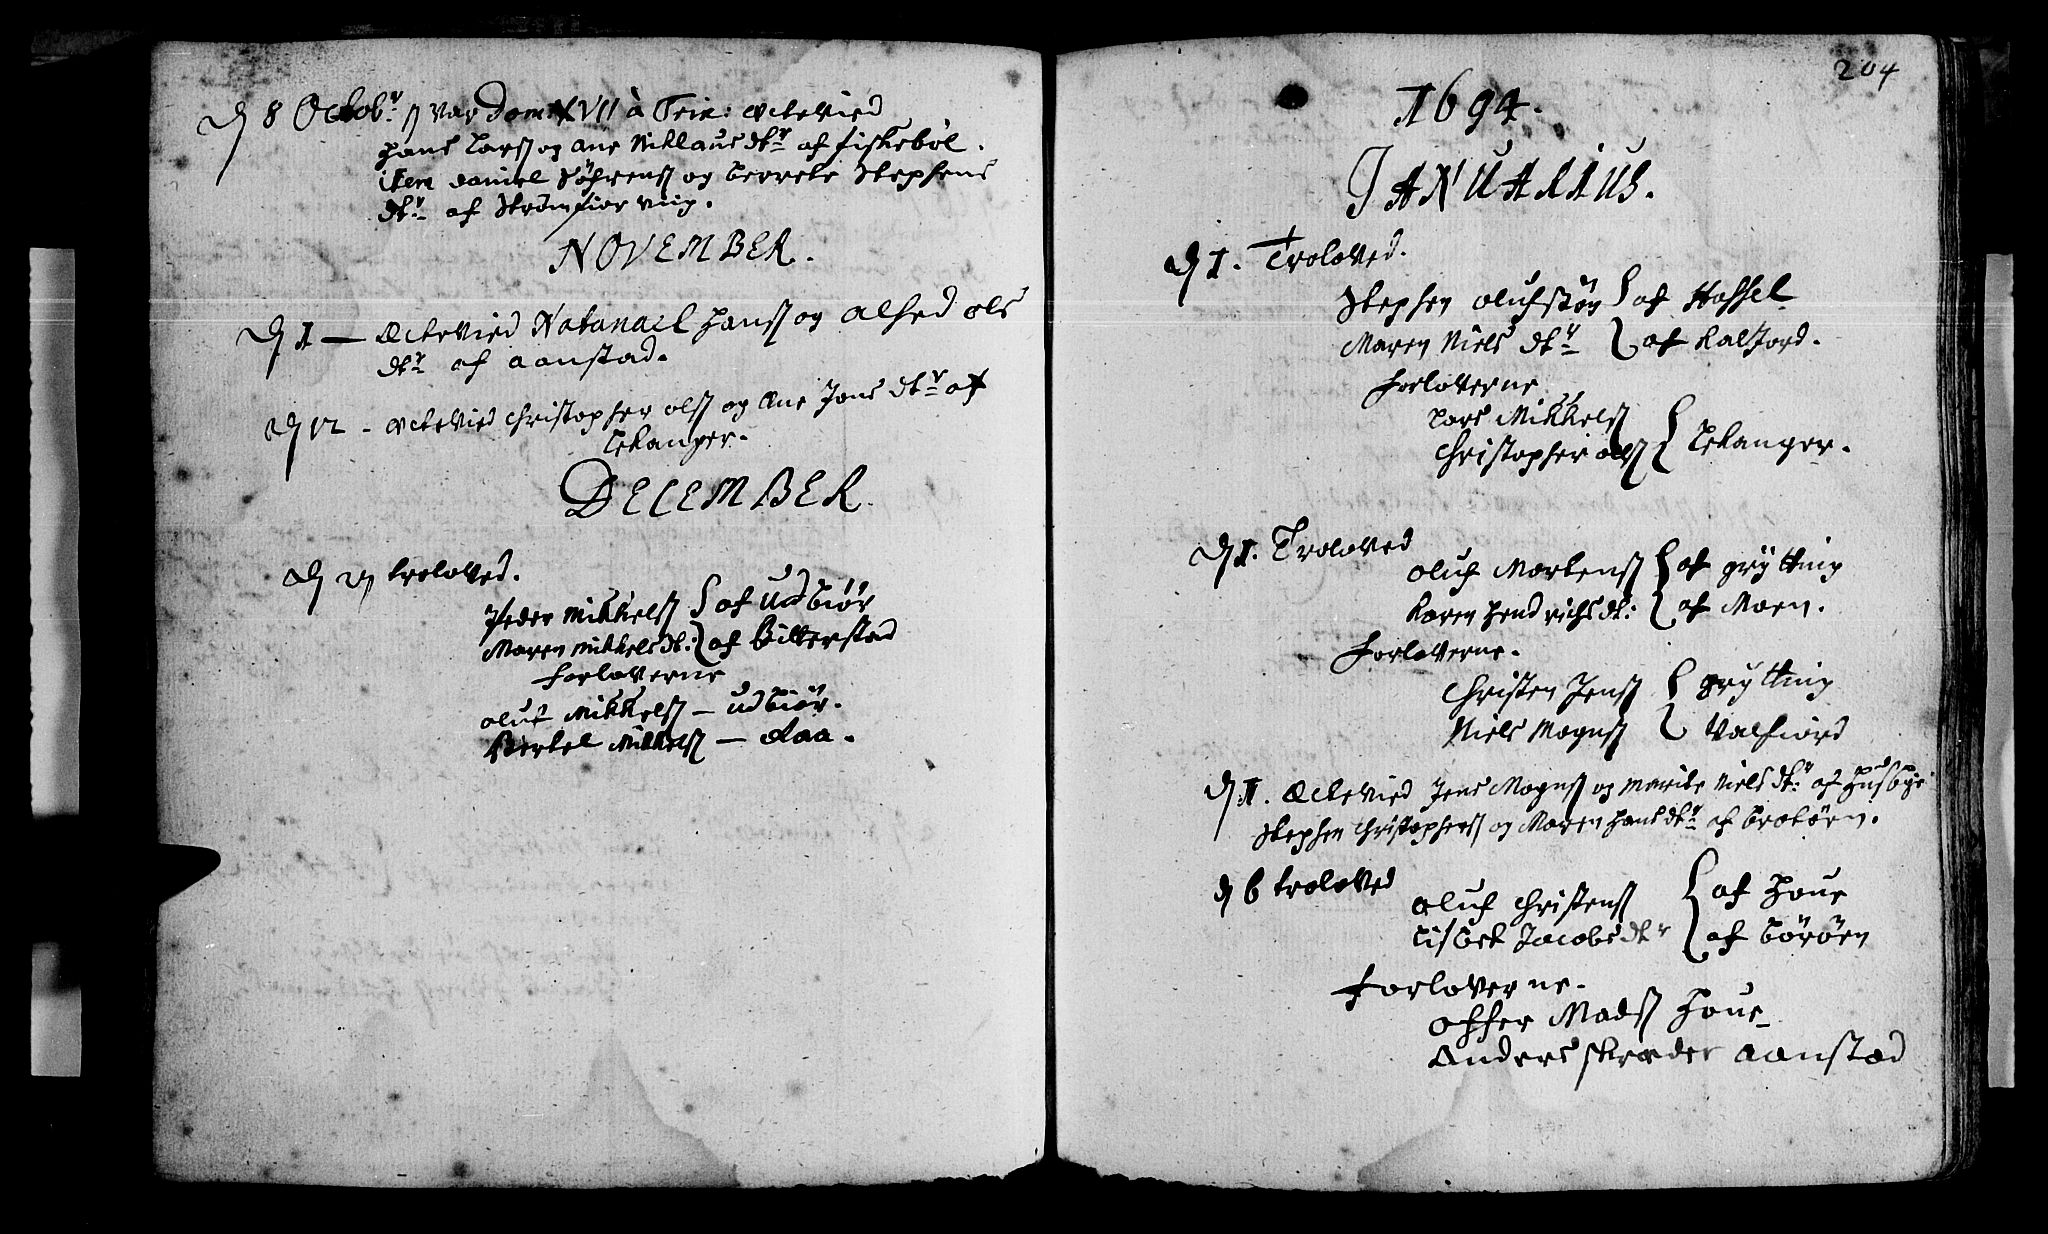 D 8 Octobr: var Dom: XVII à Trin: Ectevied
Hans Larss og Ane Niklaus dtr af fiskebøl.
item Daniel Søfrenss og Berrete Stephens
dtr af Strømfiorviig.
NOVEMBER.
D 1 — Ectevied Natanael Hanss og Alhed Ols
dtr af Aanstad.
D 12 - Ectevied Christopher Olss og Ane Jens dtr af
Lekanger.
DECEMBER
D troloved.
Peder Mikkelss af Udbiør
Maren Mikkelsdt: af Bitterstad
Forloverne
Oluf Mikkelss — Udbiør.
Bertel Mikkelss — Aaa.
204
1694.
JANUARIUS.
D 1. Troloved.
Stephen Olufsøn af Hassel
Maren Niels dtr af Kalfiord.
Forloverne
Lars Mikkelss
Christopher Olss Lekanger.
D 1. Troloved
Oluf Mortenss af Grytting
Karen Hendrichsdt: af Moen.
Forloverne.
Christen Jenss Grytting
Niels Mogenss Valfiord
D 1. Ectevied Jens Mogenss og Marite Nielsdtr af Husbye
Stephen Christopherss og Maren Hansdtr af Brotøen.
D 6 troloved
Oluf Christenss af Houe
Lisbet Jacobsdtr af Børøen
Forloverne.
Offer Madss Houe
Anders Skræder Aanstad